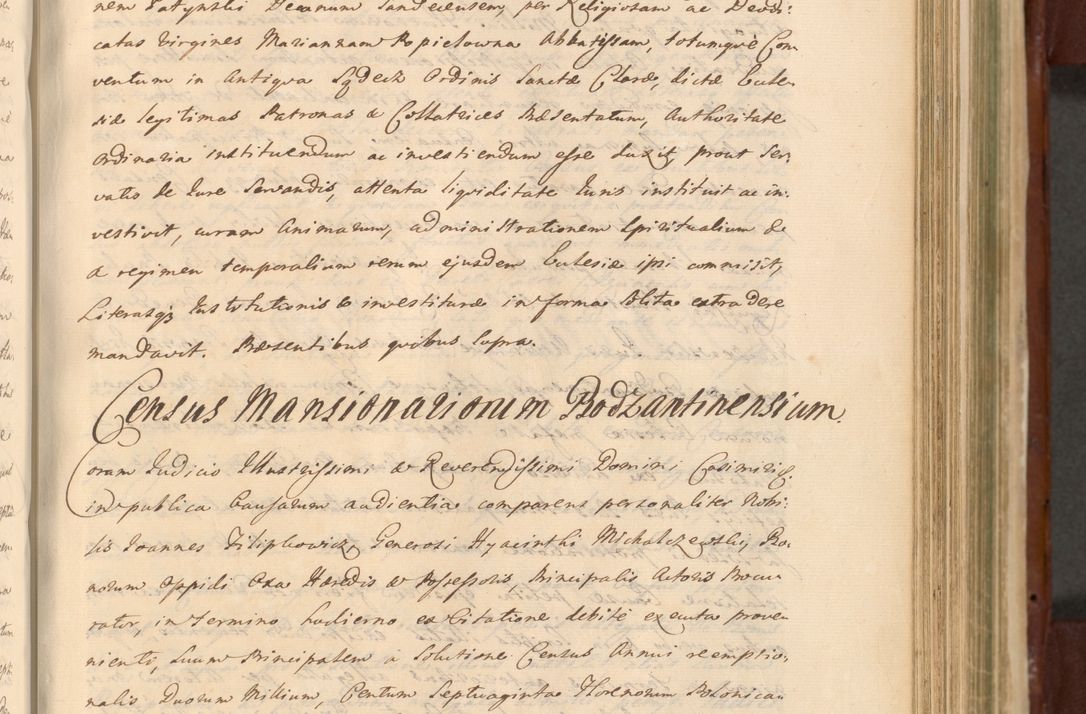 nem Patynski Decanum Sandecensem, per Religiosam ac Devo:
catas Virgines Mariannam Popielowna Abbatissam, totumqve Con
ventum in Antiqva Sądecz Ordinis Sanctæ Claræ, dictæ Eccle.
siæ legitimas Patronas & Collatrices Præsentatum, Authoritate
Ordinaria instituendum ac investiendum esse duxit, prout Ser,
vatis de Iure Servandis, attenta liqviditate Iuris instituit ac in:
vestivit, curam Animarum, administrationem Spiritualium &
& regimen temporalium rerum ejusdem Ecclesiæ ipsi commisit,
Literasq; Institutionis & investituræ in forma solita extradere
mandavit. Præsentibus qvibus supra.
Census Mansionariorum Bodzantinensium.
Coram Iudicio Illustrissimi & Reverendissimi Domini Casimiri &.
in publica Causarum audientia comparens personaliter Nobi:
lis Ioannes Filipkowicz, Generosi Hyacinthi Michalczewski, Bo,
norum oppidi Hæredis & Possessoris, Principalis Actoris Procu
rator, in termino hodierno ex Citatione debitè executa proven
nienti, Suum Principalem a Solutione Census Annui reemptio,
nalis Duorum Millium, Centum Septuaginta Florenorum Polonican